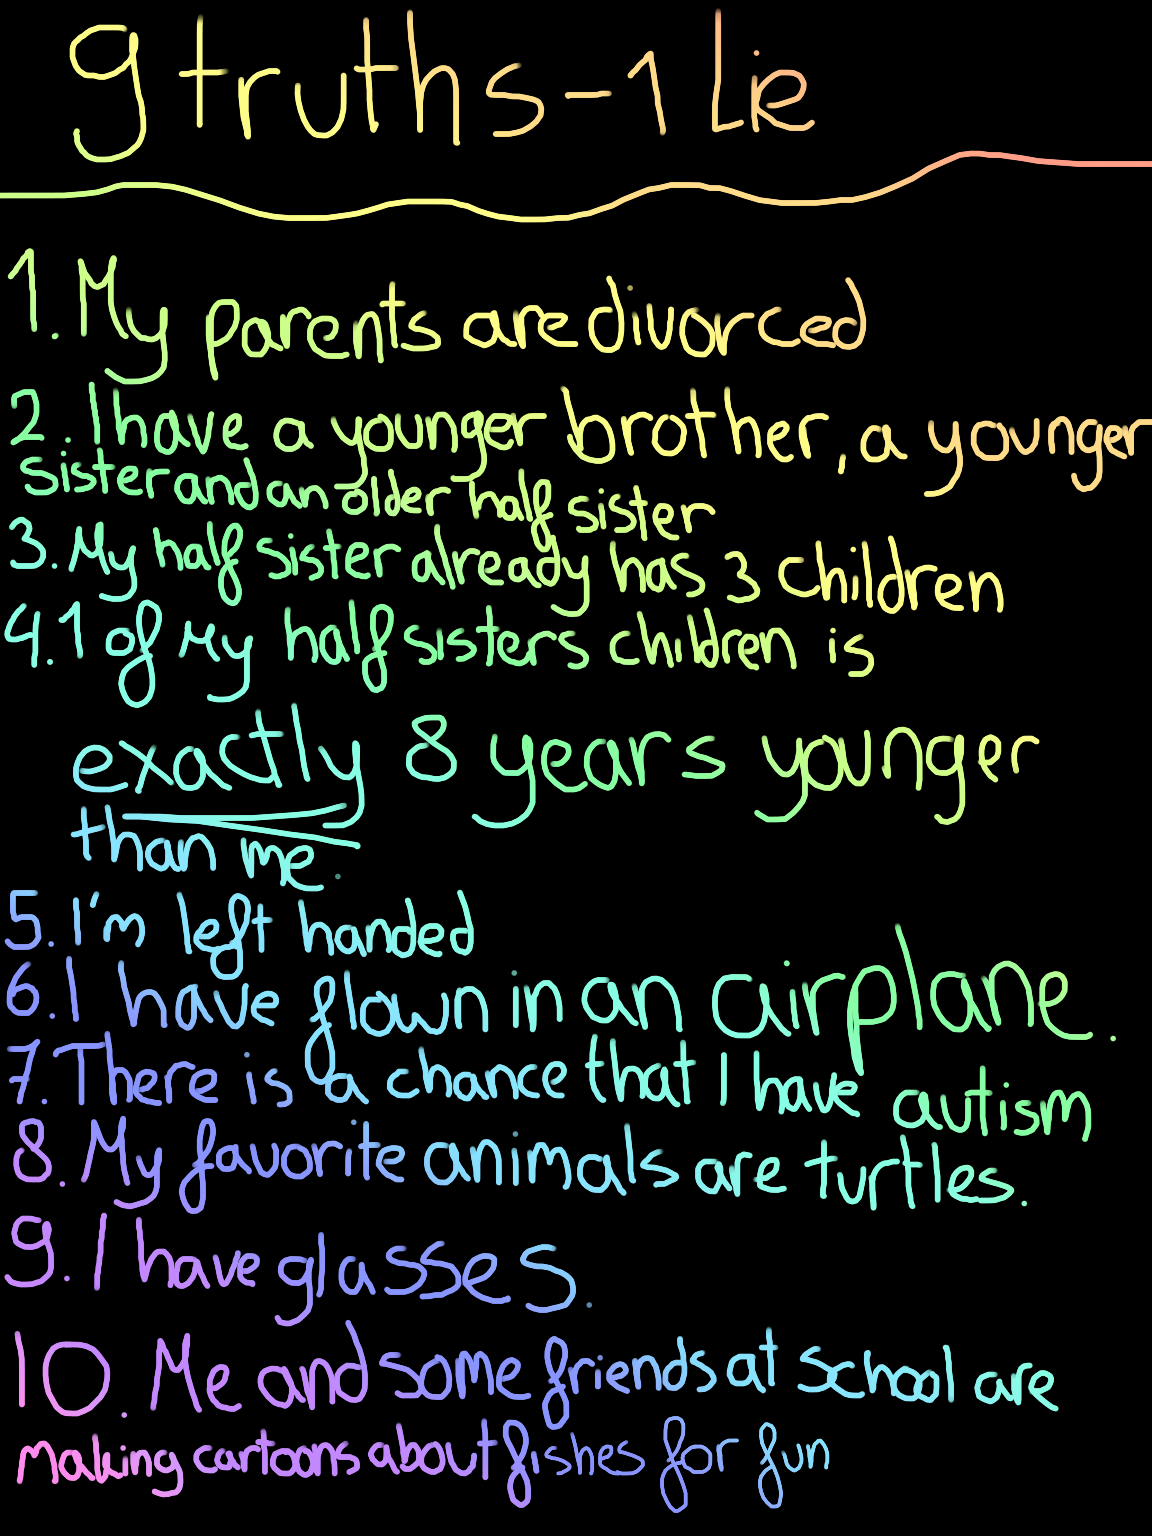 9 truths - 1 Lie
1. My parents are divorced
2. I have a younger brother, a younger
sister and an older half sister
3. My half sister already has 3 children
4. 1 of my half sisters children is
exactly 8 years younger
than me.
5. I'm left handed
6. I have flown in an airplane.
7. There is a chance that I have autism
8. My favorite animals are turtles.
9. I have glasses.
10. Me and some friends at school are
making cartoons about fishes for fun